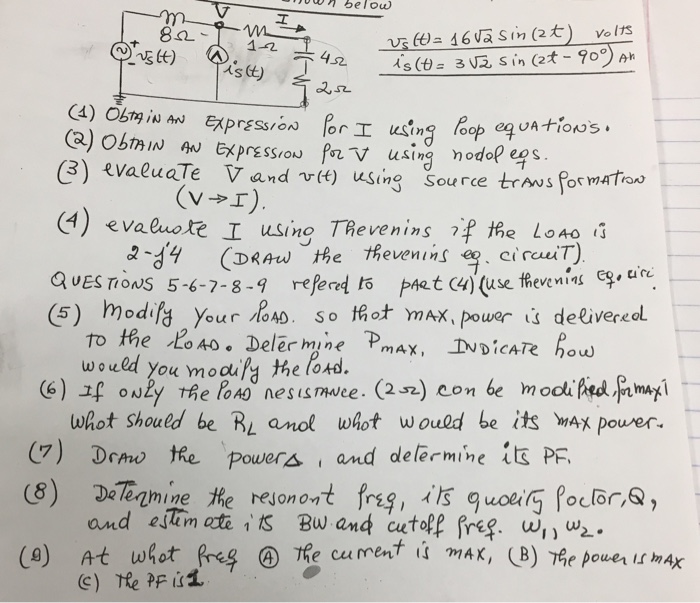 below
V
I
8Ω
1Ω
+
-
vs(t)
is(t)
4Ω
2Ω
vs(t) = 16√2 sin(2t) volts
is(t) = 3√2 sin(2t - 90°) Am
(1) Obtain an Expression for I using loop equations.
(2) Obtain an Expression for V using nodal eqs.
(3) evaluate V and v(t) using source transformation
(V → I).
(4) evaluate I using Thevenins if the LOAD is
2-j4 (DRAW the thevenins eq. circuiT).
QUESTIONS 5-6-7-8-9 refered to part (4) (use thevenins Eq. circ
(5) Modify your LOAD. so that max, power is delivered
to the LOAD. Determine Pmax, INDICATE how
would you modify the load.
(6) If only the load resistance. (2Ω) can be modified, for max
what should be RL and what would be its max power.
(7) Draw the powerΔ, and determine its PF.
(8) Determine the resonont freq, its quality factor, Q,
and estimate its BW and cutoff freq. w1, w2.
(9) At what freq (A) the current is max, (B) The power is max
(c) The PF is 1